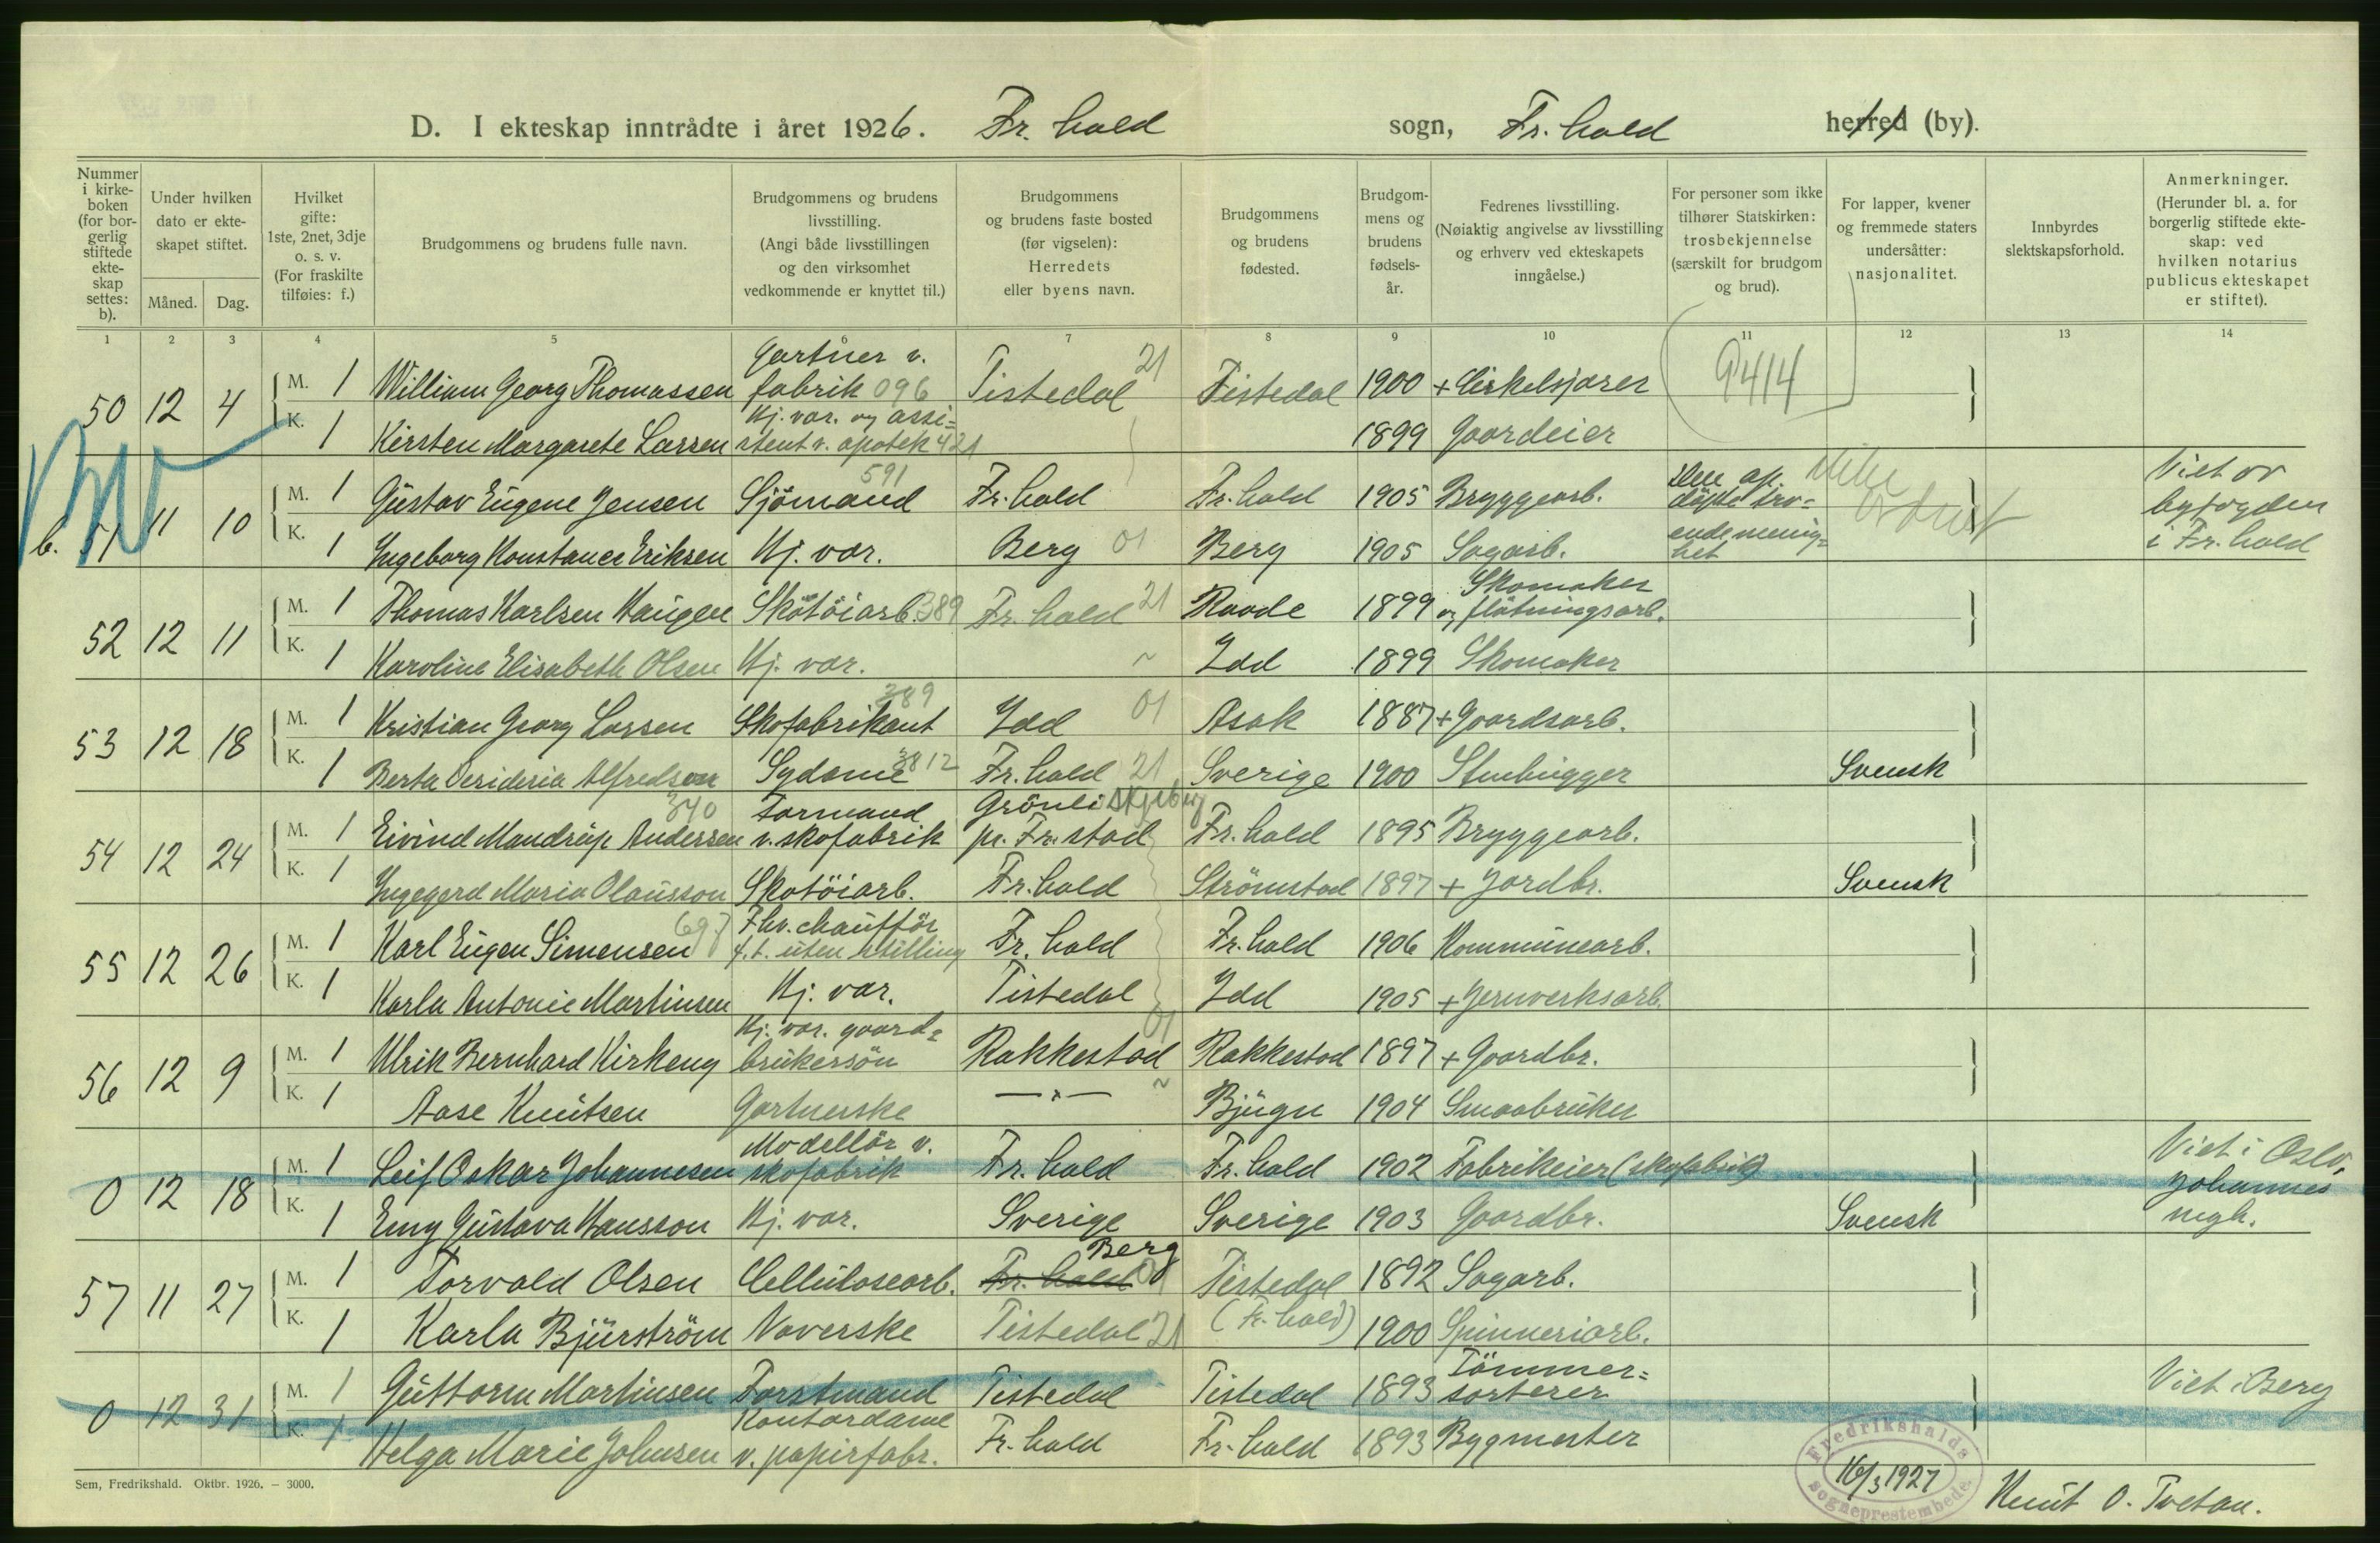 D. I ekteskap inntrådte i året 1926. Fr. hald sogn, Fr. hald herred (by).
Nummer i kirke-boken (for bor-gerlig stiftede ekte-skap settes: b).
Under hvilken dato er ekte-skapet stiftet.
Måned. Dag.
Hvilket gifte: 1ste, 2net, 3dje o. s. v. (For fraskilte tilføies: f.)
Brudgommens og brudens fulle navn.
Brudgommens og brudens livsstilling. (Angi både livsstillingen og den virksomhet vedkommende er knyttet til.)
Brudgommens og brudens faste bosted (før vigselen): Herredets eller byens navn.
Brudgommens og brudens fødested.
Brudgom-mens og brudens fødsels-år.
Fedrenes livsstilling. (Nøiaktig angivelse av livsstilling og erhverv ved ekteskapets inngåelse.)
For personer som ikke tilhører Statskirken: trosbekjennelse (særskilt for brudgom og brud).
For lapper, kvener og fremmede staters undersåtter: nasjonalitet.
Innbyrdes slektskapsforhold.
Anmerkninger. (Herunder bl. a. for borgerlig stiftede ekte-skap: ved hvilken notarius publicus ekteskapet er stiftet).
1 2 3 4 5 6 7 8 9 10 11 12 13 14
50 12 4 M. 1 William Georg Thomassen Gartner v. fabrik 096 Tistedal 21 Tistedal 1900 + Cirkelsjarer 9414
K. 1 Kirsten Margarete Larsen Hj. var. og assi=stent v. apotek 421 1899 Gaardeier
b. 51 11 10 M. 1 Gustav Eugene Jensen Sjömand 591 Fr. hald Fr. hald 1905 Bryggearb. Den ap. döpte tro=ende menig=het Viet av byfogden i Fr. hald
K. 1 Ingeborg Konstance Eriksen Hj. var. Berg 01 Berg 1905 Sagarb.
52 12 11 M. 1 Thomas Karlsen Haugen Skötöiarb. 389 Fr. hald 21 Raade 1899 Skomaker og flötningsarb.
K. 1 Karoline Elisabeth Olsen Hj. var. ~ Idd 1899 Skomaker
53 12 18 M. 1 Kristian Georg Larsen Skofabrikant 389 Idd 01 Asak 1887 + Gaardsarb.
K. 1 Berta Desideria Alfredson Sydame 3812 Fr. hald 21 Sverige 1900 Stenhugger Svensk
54 12 24 M. 1 Eivind Mandrup Anderssen 340 Formand v. skofabrik Grönli Skjeberg pr. Fr. stad Fr. hald 1895 Bryggearb.
K. 1 Ingegerd Maria Olausson Skotöiarb. Fr. hald Strömstad 1897 + Jordbr. Svensk
55 12 26 M. 1 Karl Eugen Simensen 697 Fhv. chaufför f. t. uten stilling Fr. hald Fr. hald 1906 Kommunearb.
K. 1 Karla Antonie Martinsen Hj. var. Tistedal Idd 1905 + Jernverksarb.
56 12 9 M. 1 Ulrik Bernhard Kirkeng Hj. var. gaard=brukersön Rakkestad 01 Rakkestad 1897 + Gaardbr.
K. 1 Aase Knutsen Gartnerske —"— ~ Bjugn 1904 Smaabruker
0 12 18 M. 1 Leif Oskar Johannesen Modellör v. skofabrik Fr. hald Fr. hald 1902 Fabrikeier (skofabrik) Viet i Oslo, Johannes mgh.
K. 1 Emy Gustava Hansson Hj. var. Sverige Sverige 1903 Gaardbr. Svensk
57 11 27 M. 1 Torvald Olsen Cellulosearb. Fr. hald Berg 01 Tistedal (Fr. hald) 1892 Sagarb.
K. 1 Karla Bjurström Væverske Tistedal 21 1900 Spinneriarb.
0 12 31 M. 1 Guttorm Martinsen Forstmand Tistedal Tistedal 1893 Tömmer=sorterer Viet i Berg
K. 1 Helga Marie Johnsen Kontordame v. papirfabr. Fr. hald Fr. hald 1893 Bygmester
Sem, Fredrikshald. Oktbr. 1926. – 3000.
Fredrikshalds sogneprestembede
16/3 1927
Knut O. Tvetan.